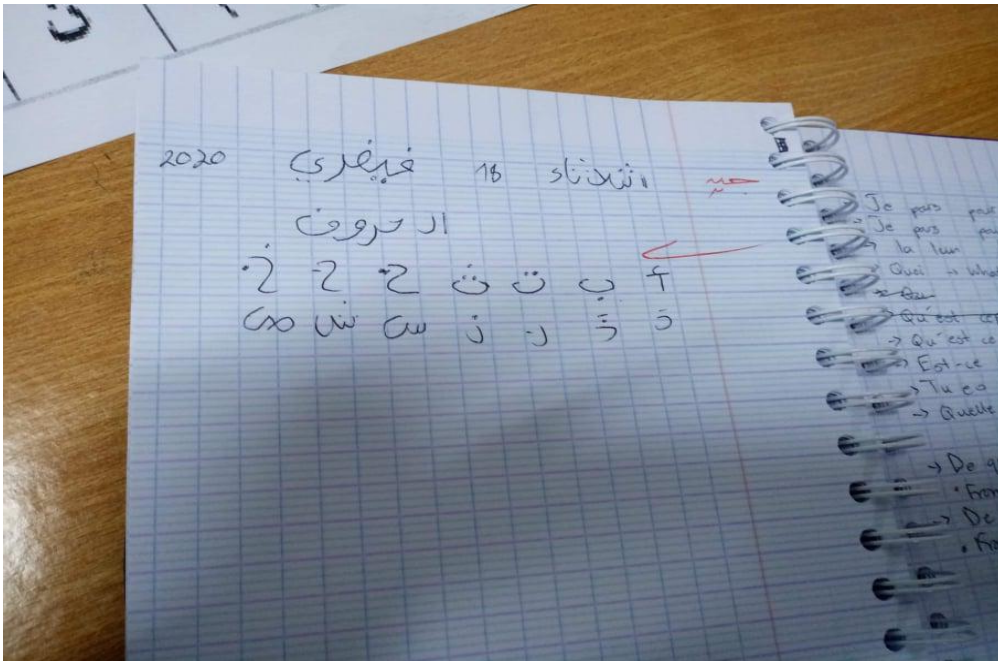 جيد
الثلاثاء 18 فيفري 2020
الحروف
أ ب ت ث ج ح خ
د ذ ر ز س ش ص
Je pars pour
Je pars
la
Quoi → Wha
→ Qu'est ce
→ Qu'est ce
→ Est-ce
→ Tu es
→ Quelle
→ De q
• From
→ De
• Fro